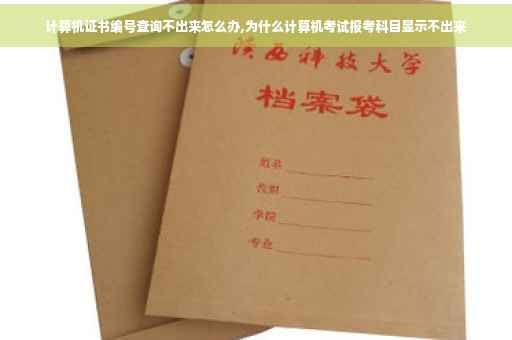 计算机证书编号查询不出来怎么办,为什么计算机考试报考科目显示不出来
陕西科技大学
档案袋
姓名
学院
专业